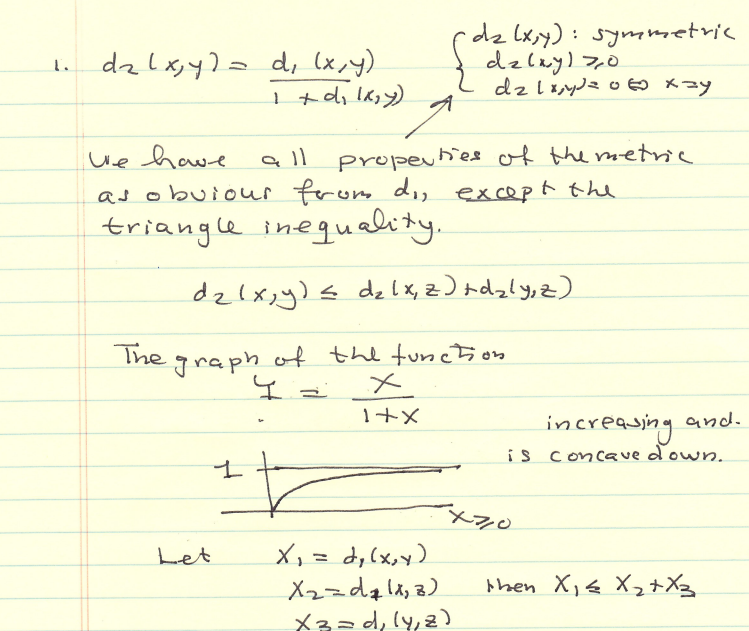 1. d₂(x,y) = d₁(x,y) / 1 + d₁(x,y)
{ d₂(x,y) : symmetric
d₂(x,y) ≥ 0
d₂(x,y) = 0 ⇔ x=y
we have all properties of the metric
as obvious from d₁, except the
triangle inequality.
d₂(x,y) ≤ d₂(x,z) + d₂(y,z)
The graph of the function
Y = X / 1+X
increasing and
is concave down.
1
X≥0
Let X₁ = d₁(x,y)
X₂ = d₁(x,z) then X₁ ≤ X₂+X₃
X₃ = d₁(y,z)